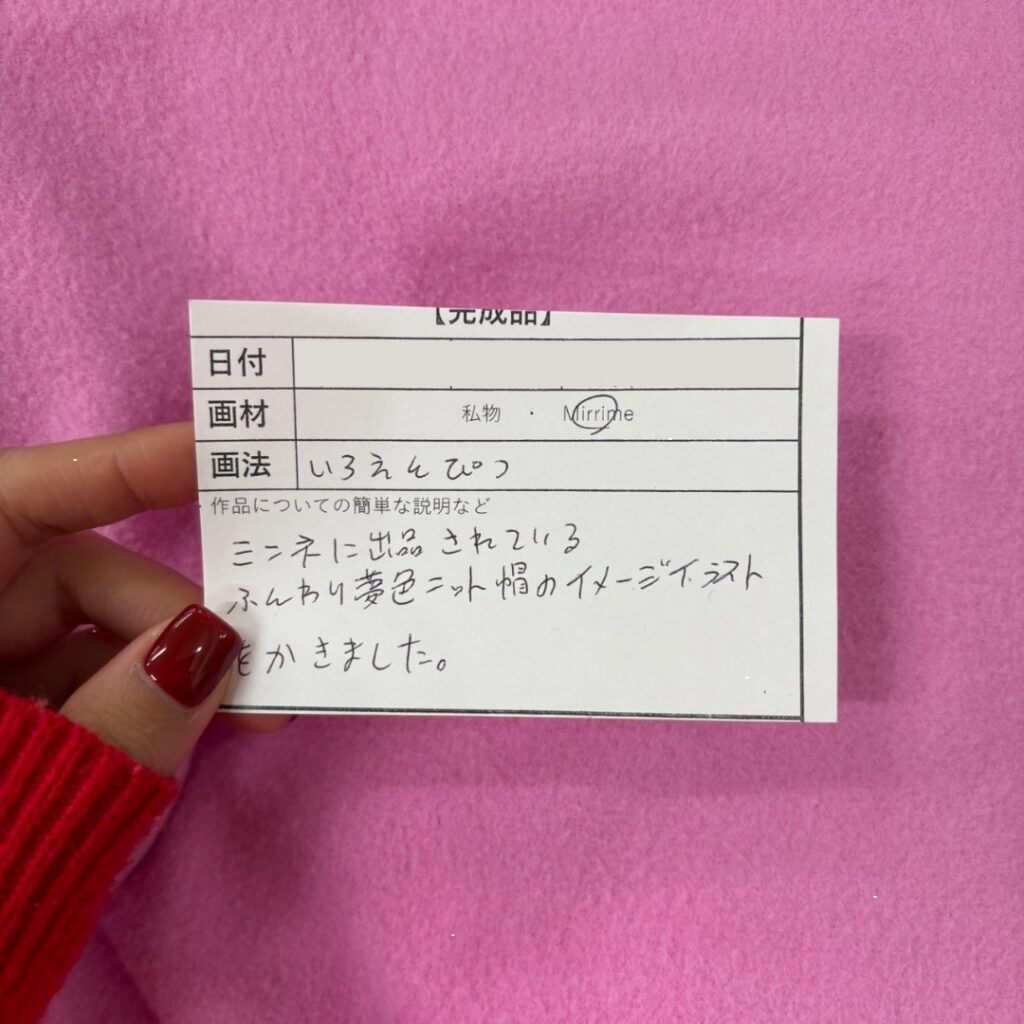 【完成品】
日付
画材 私物 ・ Mirrime
画法 いろえんぴつ
作品についての簡単な説明など
ミンネに出品されている
ふんわり夢色ニット帽のイメージイラスト
をかきました。